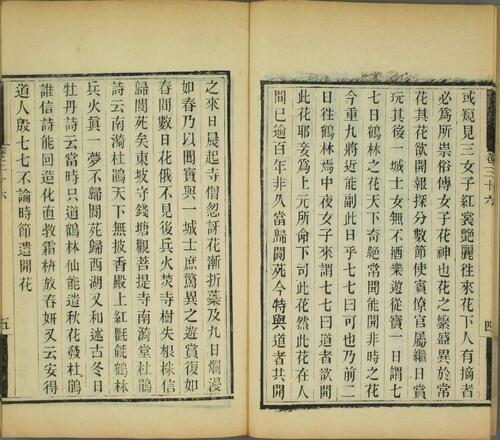 或窺見三女子紅裳艷麗往來花下人有摘者
必為所祟俗傳女子花神也花之繁盛異於常
花其花欲開報探分數節使賓僚官屬繼日賞
玩其後一城士女無不酒樂遊從寳一日謂七
七曰鶴林之花天下奇絕常聞能開非時之花
今重九將近能副此日乎七七曰可也乃前二
日往鶴林焉中夜女子來謂七七曰道者欲開
此花耶妾為上元所命下司此花然此花在人
間已逾百年非久當歸閬苑今特與道者共開
四
之來日晨起寺僧忽訝花漸折蘂及九日爛漫
如春乃以聞寳與一城士庶驚異之遊賞復如
春間數日花俄不見後兵火焚寺樹失根株信
歸閬苑矣東坡守錢塘觀菩提寺南漪堂杜鵑
詩云南漪杜鵑天下無披香殿上紅氍毹鶴林
兵火真一夢不歸閬苑歸西湖又和述古冬日
牡丹詩云當時只道鶴林仙能遣秋花發杜鵑
誰信詩能回造化直教霜枿放春妍又云安得
道人殷七七不論時節遣開花
五